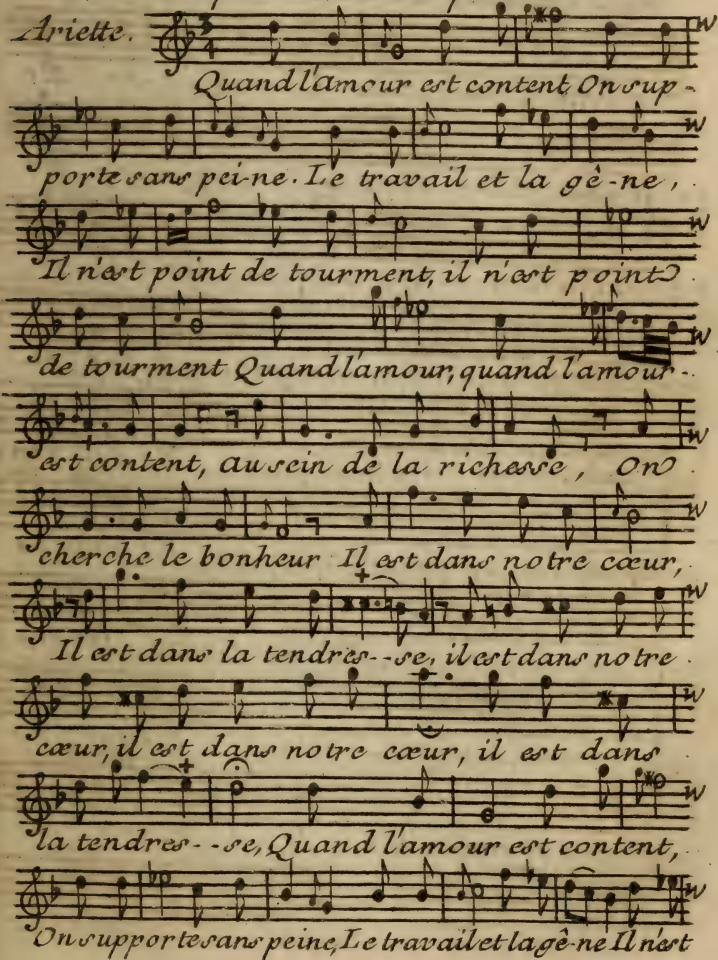 Ariette.
Quand l'amour est content, On sup-
porte sans pei-ne. Le travail et la gê-ne,
Il n'est point de tourment, il n'est point
de tourment Quand l'amour, quand l'amour-
est content, au sein de la richesse, On
cherche le bonheur Il est dans notre cœur,
Il est dans la tendres--se, il est dans notre
cœur, il est dans notre cœur, il est dans
la tendres--se, Quand l'amour est content,
On supporte sans peine, Le travail et la gê-ne Il n'est